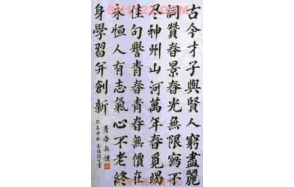 古今才子與賢人窮盡麗
詞贊春景春光無限寫不
尽神州山河萬年春覓竭
佳句譽青春青春無價在
永恒人有志氣心不老終
身學習年創新